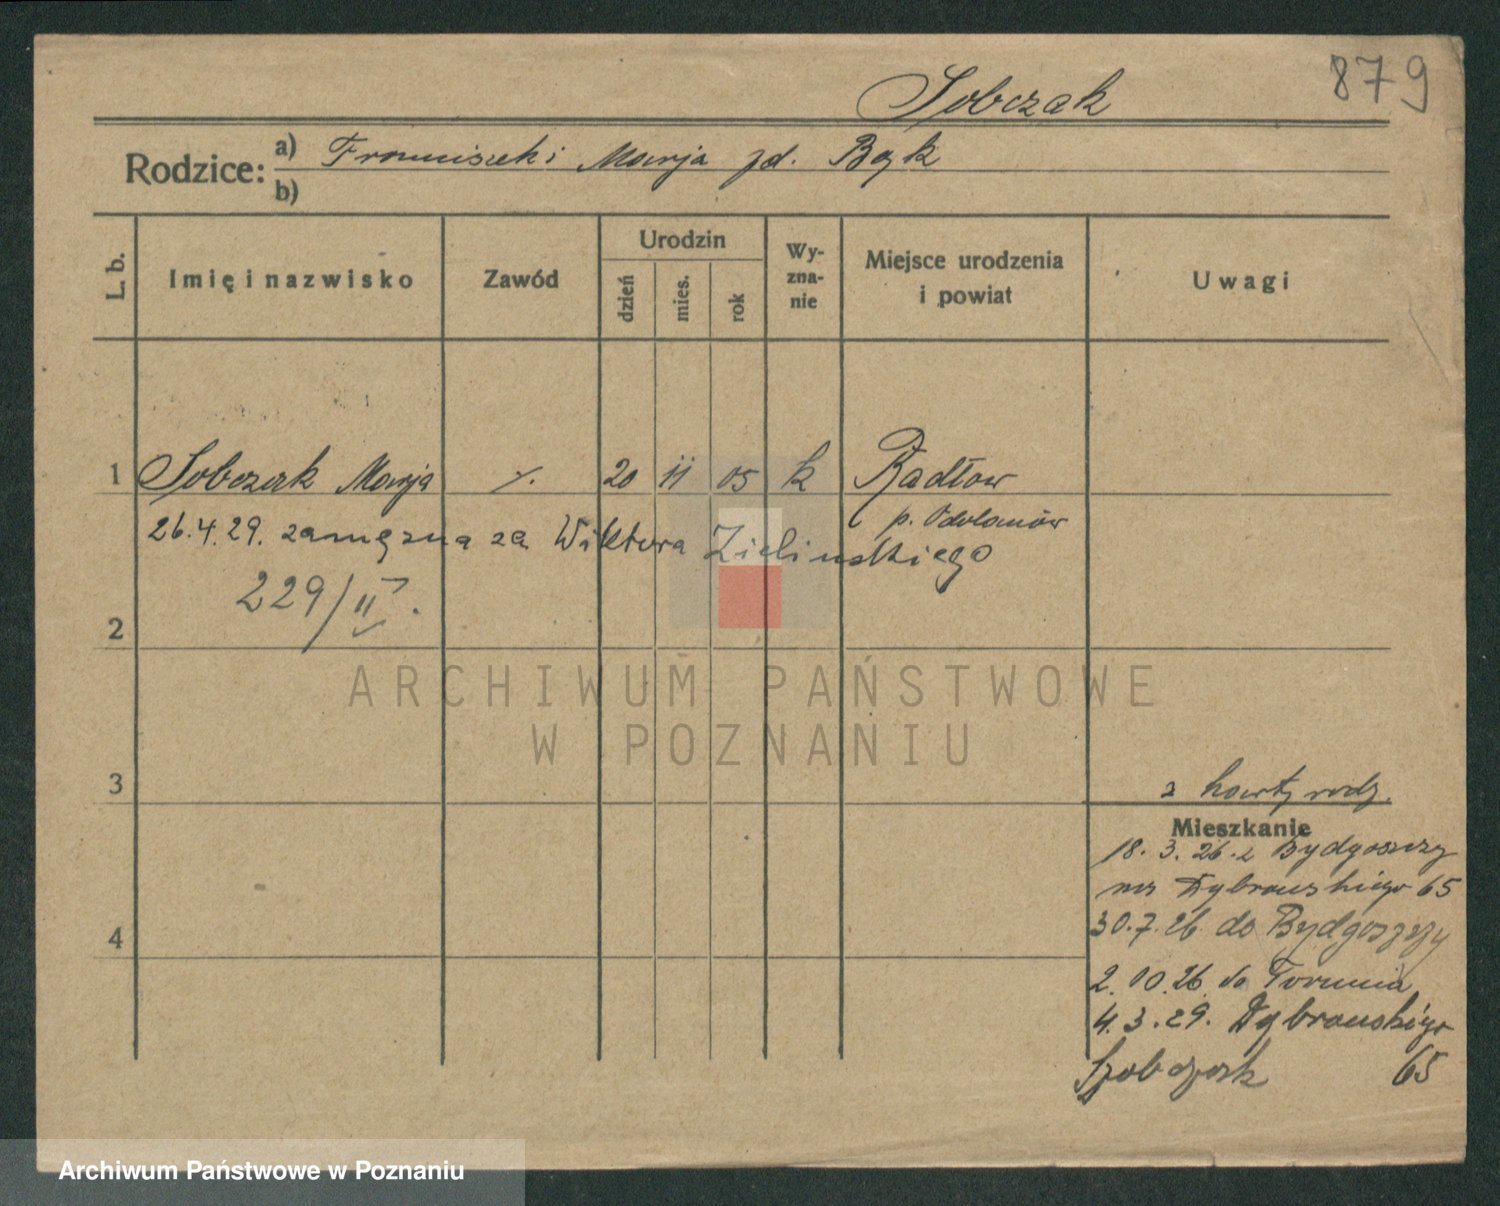 879
Sobczak
Rodzice: a) Franciszek i Marja zd. Bąk
b)
L. b. Imię i nazwisko Zawód Urodzin dzień mies. rok Wy-zna-nie Miejsce urodzenia i powiat Uwagi
1 Sobczak Marja ./. 20 11 05 k Radłow
p. Odolanów
26.4.29. zamężna za Wiktora Zielinskiego
229/II.
2
ARCHIWUM PAŃSTWOWE
W POZNANIU
3
z karty rodz.
Mieszkanie
18.3.26. z Bydgoszczy
na Dąbrowskiego 65
30.7.26. do Bydgoszczy
4
2.10.26. do Torunia
4.3.29. Dąbrowskiego
65
Archiwum Państwowe w Poznaniu